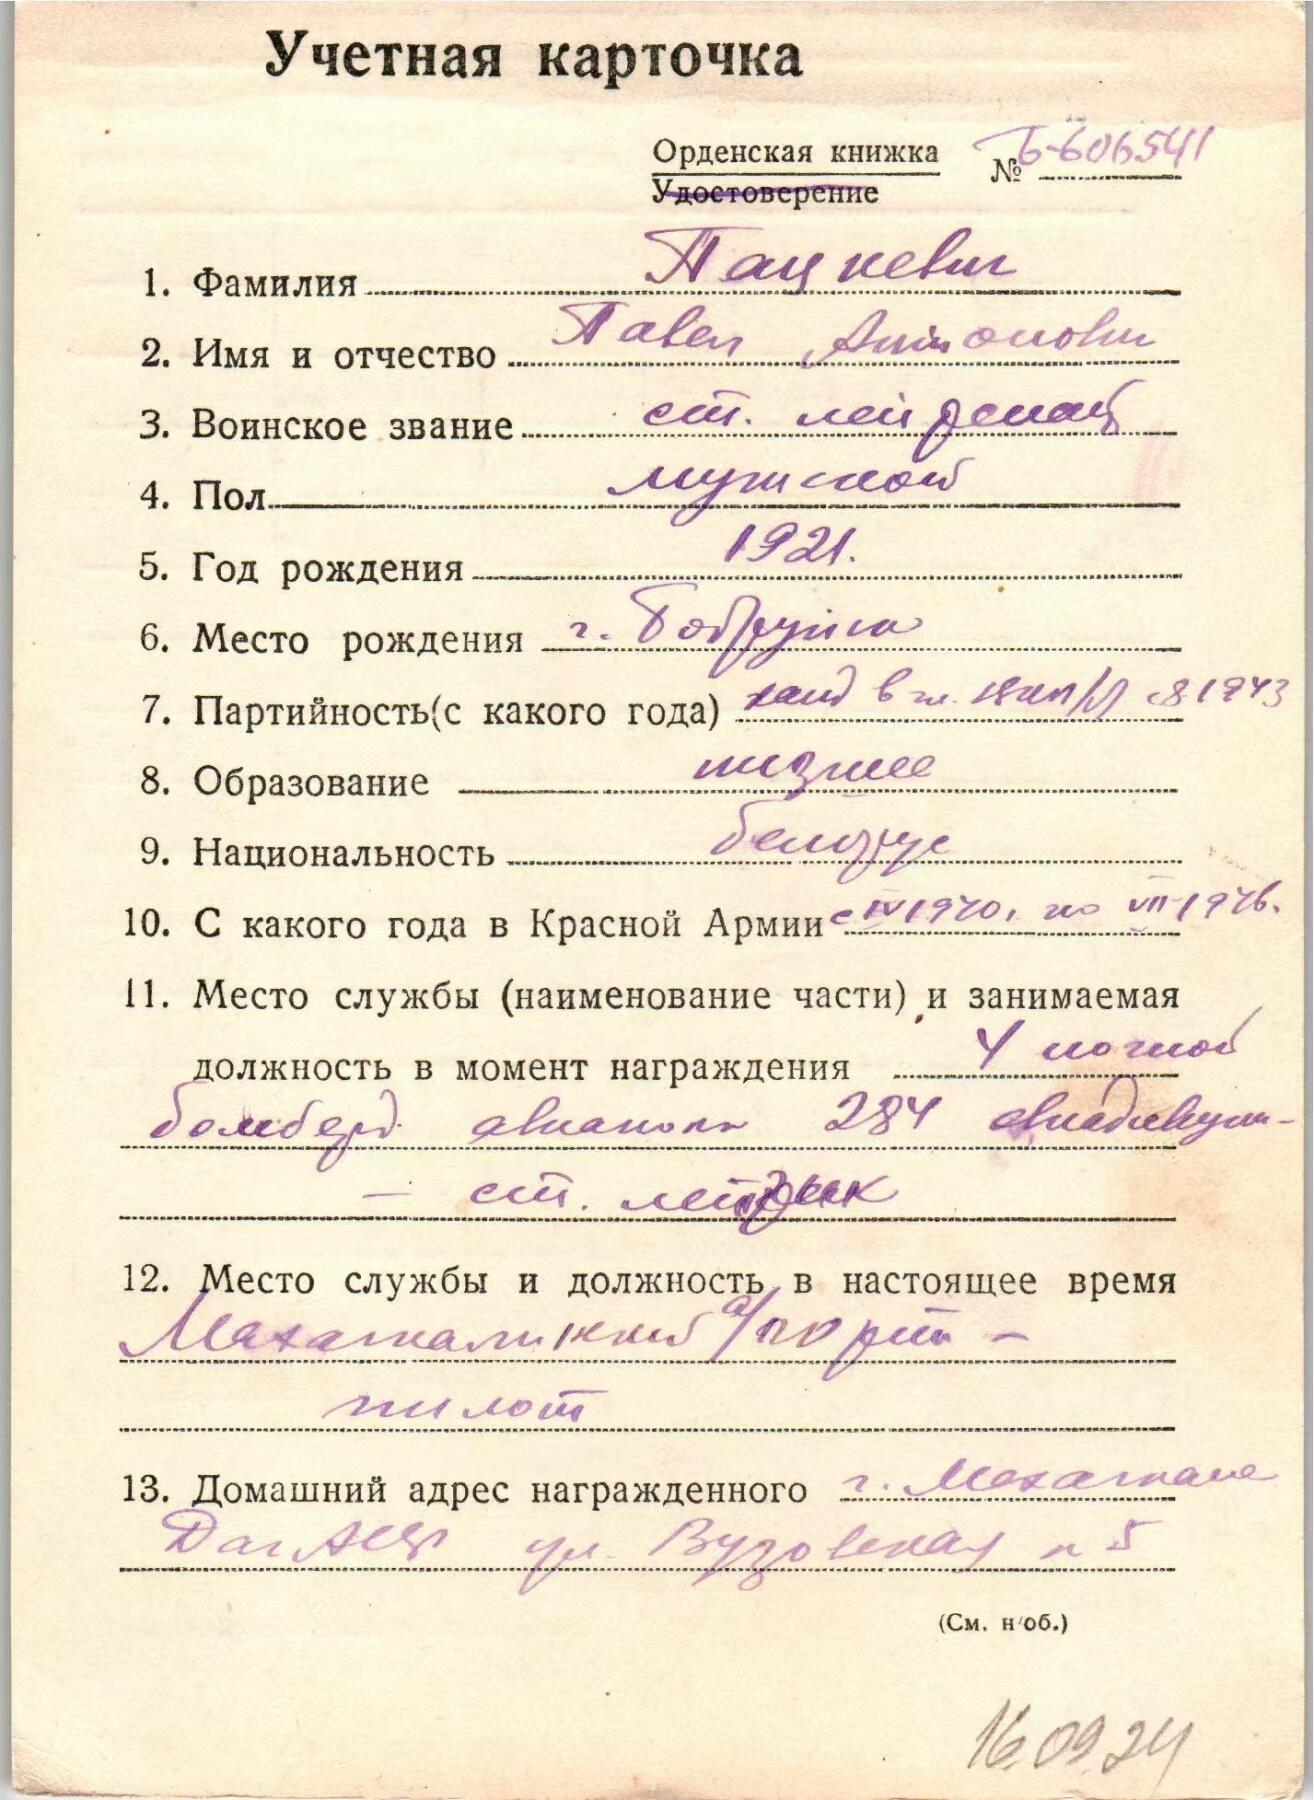 Учетная карточка
Орденская книжка № Б-606541
Удостоверение
1. Фамилия Пацкевич
2. Имя и отчество Павел Антонович
3. Воинское звание ст. лейтенант
4. Пол мужской
5. Год рождения 1921.
6. Место рождения г. Бобруйск
7. Партийность(с какого года) канд в чл. ВКП/б/ с 1943
8. Образование низшее
9. Национальность белорус
10. С какого года в Красной Армии с IV 1940, по VII-1946.
11. Место службы (наименование части) и занимаемая
должность в момент награждения 4 ночной
бомберд. авиаполк 284 авиадивизии-
– ст. летчик
12. Место службы и должность в настоящее время
Махачкалинский а/порт –
пилот
13. Домашний адрес награжденного г. Махачкала
ДагАССР ул. Вузовская 5
(См. н/об.)
16.09.24